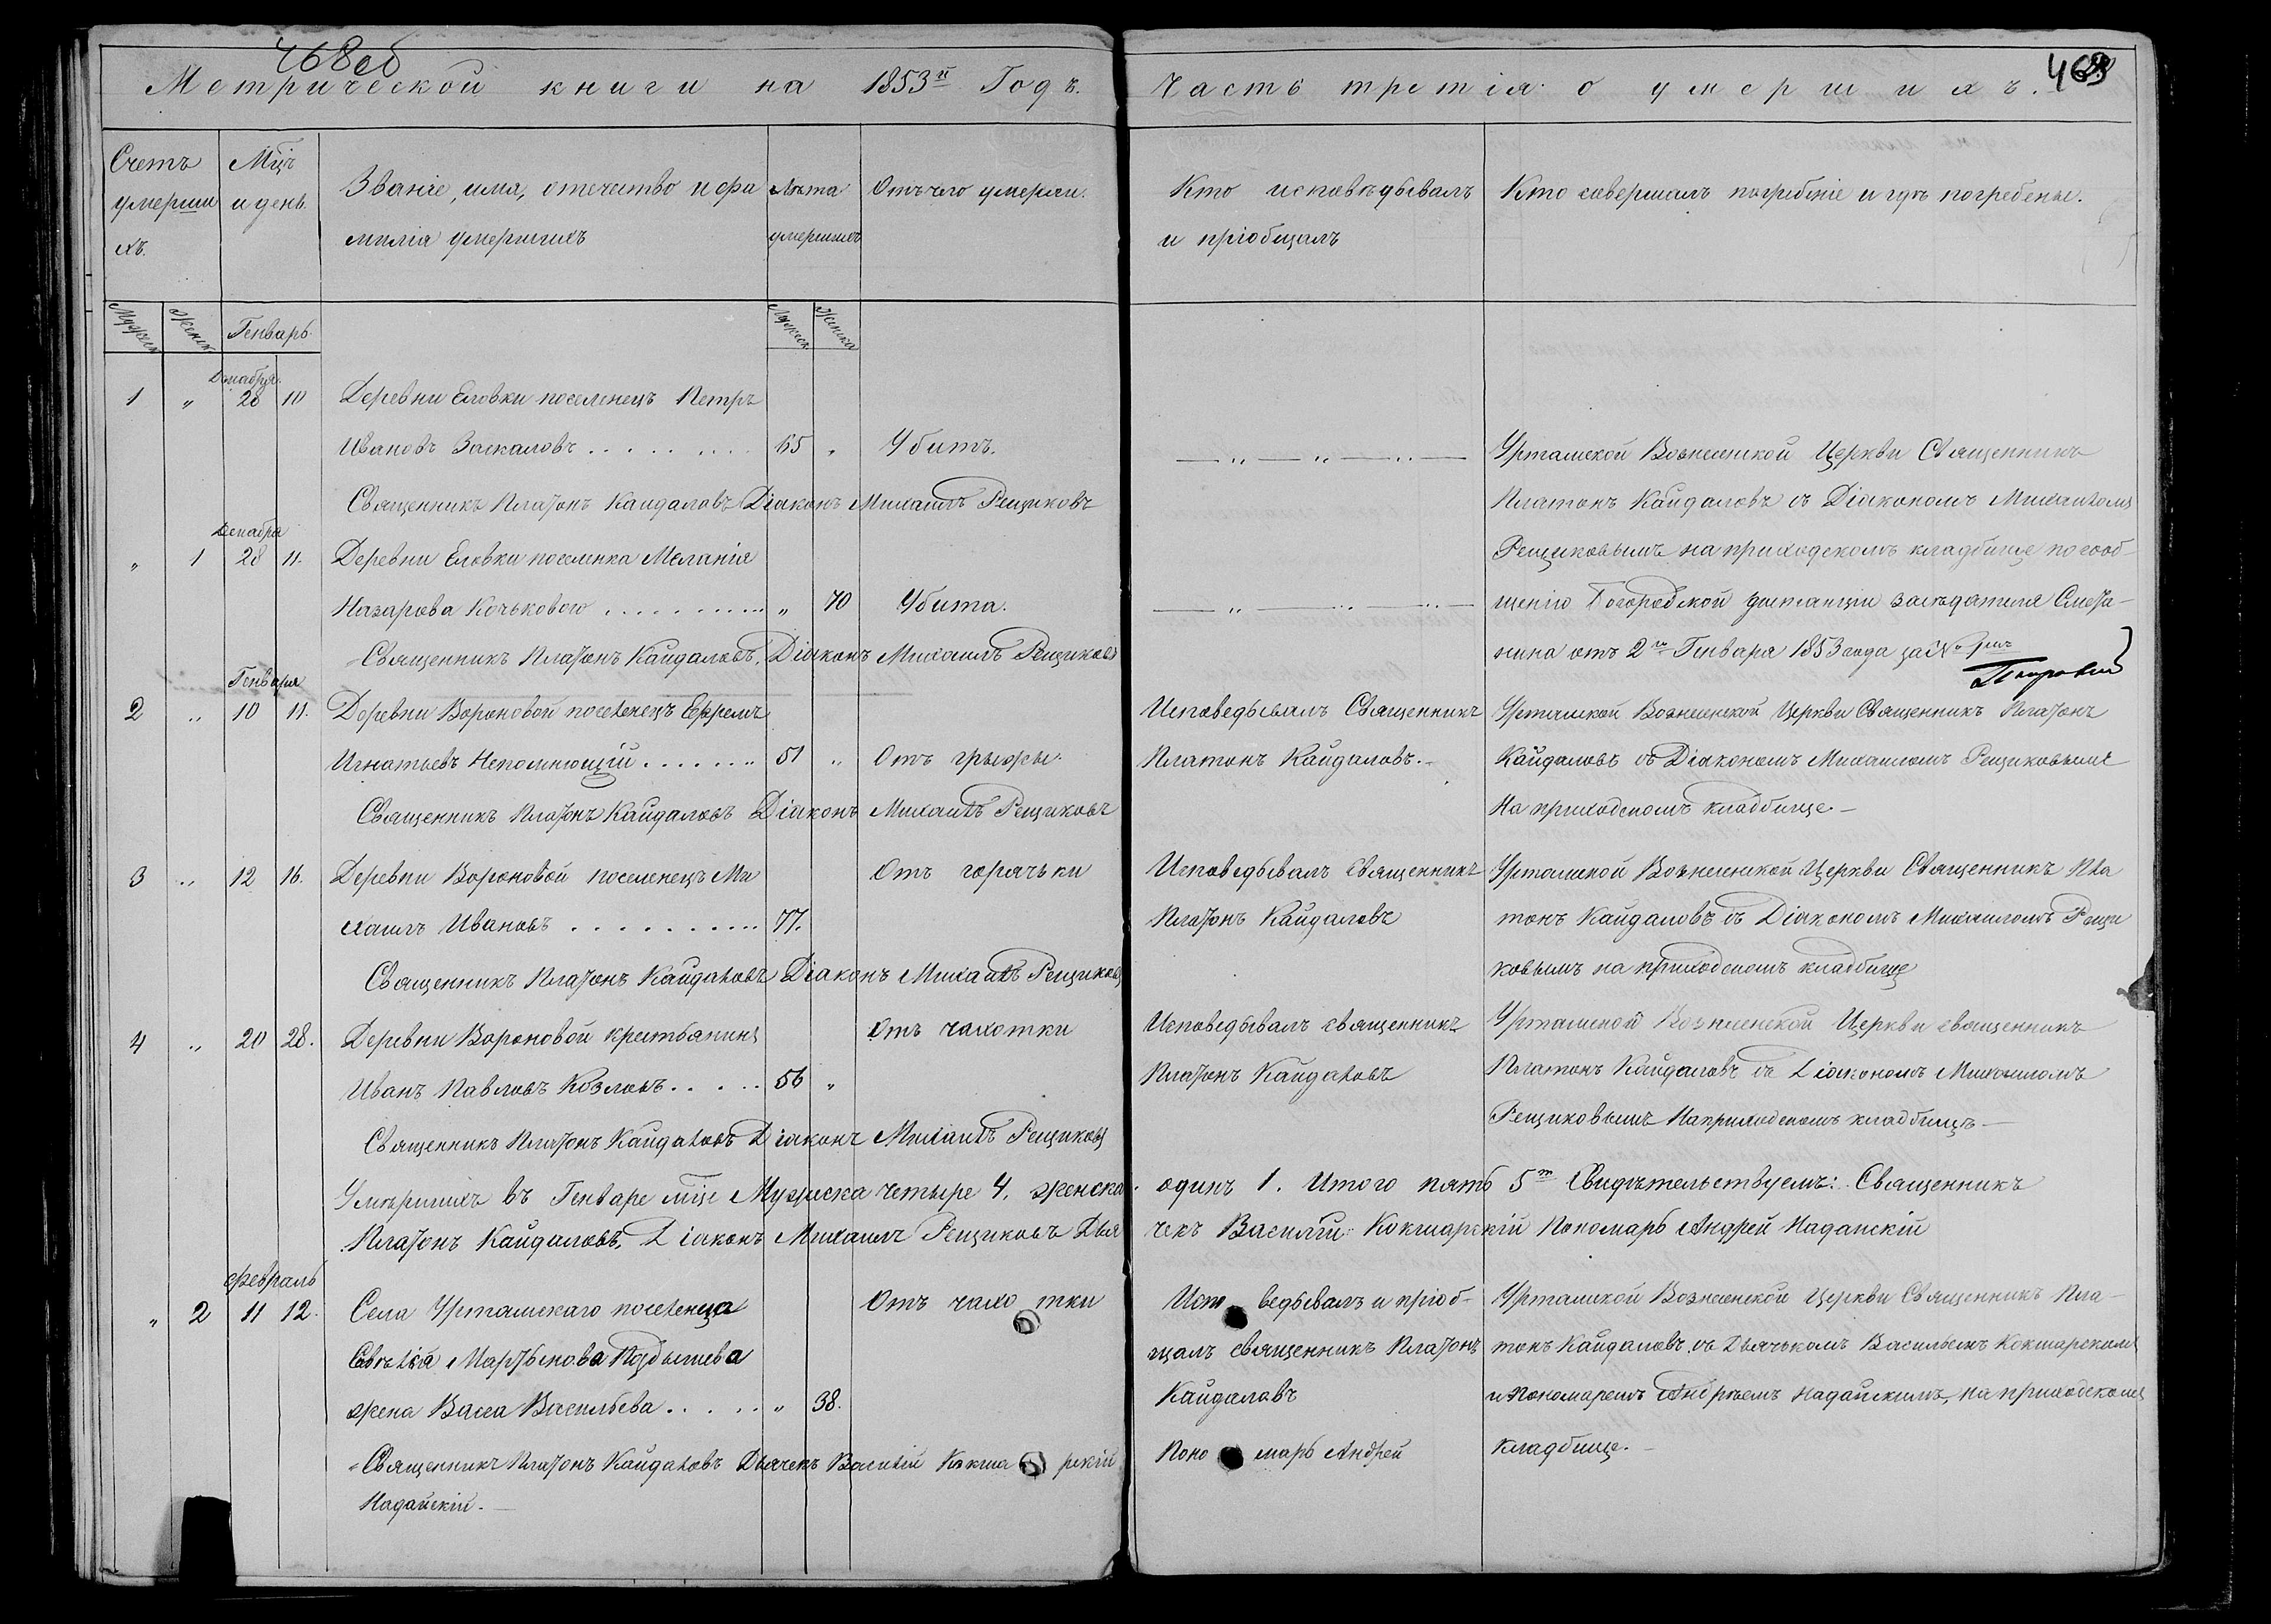 468об
Метрической книги на 1853й Годъ.
Часть третія о умершихъ.
469
Счетъ умерши хъ.
Мцъ и день.
Званіе, имя, отечество и фа
милія умершихъ
Лѣта умершихъ
Отъ чего умерли.
Кто исповѣдывалъ
и пріобщалъ
Кто совершалъ погребеніе и гдѣ погребены.
Мужеск Женск Генварь. Мужеск Женска
Декабря.
1 " 28 10 Деревни Еловки поселенецъ Петръ
Ивановъ Заскаловъ . . . . . . . . 65 " Убитъ.
Священникъ Платонъ Кайдаловъ Діаконъ Михаилъ Рещиковъ
Урташской Вознесенской Церкви Священникъ
Платонъ Кайдаловъ съ Діакономъ Михаиломъ
Рещиковымъ на приходскомъ кладбище по сооб-
щенію дистанціи засѣдателя
нина отъ 2го Генваря 1853 года за №
Декабря
" 1 28 11. Деревни Еловки поселенка Меланія
Назарова Кочьковою . . . . . . . . . . . " 70 Убита.
Священникъ Платонъ Кайдаловъ, Діаконъ Михаилъ Рещиковъ
Генваря
2 " 10 11. Деревни Вороновой поселенецъ Ефремъ
Игнатьевъ Непомнющій . . . . . . . 51 " Отъ грыжи.
Священникъ Платонъ Кайдаловъ Діаконъ Михаилъ Рещиковъ
Исповедывалъ Священникъ
Платонъ Кайдаловъ. -
Урташской Вознесенской Церкви Священникъ Платонъ
Кайдаловъ съ Діакономъ Михаиломъ Рещиковымъ
На приходскомъ кладбище. -
3 " 12 16. Деревни Вороновой поселенецъ Ми
хаилъ Ивановъ . . . . . . . . . . 77. Отъ горячьки
Священникъ Платонъ Кайдаловъ Діаконъ Михаилъ Рещиковъ
Исповедывалъ священникъ
Платонъ Кайдаловъ
Урташской Вознесенской Церкви Священникъ Пла
тонъ Кайдаловъ съ Діакономъ Михаиломъ Рещи
ковымъ на приходскомъ кладбище
4 " 20 28. Деревни Вороновой крестьянинъ
Иванъ Павловъ Козловъ . . . . . 56 " Отъ чахотки
Священникъ Платонъ Кайдаловъ Діаконъ Михаилъ Рещиковъ
Исповедывалъ священникъ
Платонъ Кайдаловъ
Урташской Вознесенской Церкви священникъ
Платонъ Кайдаловъ съ Діакономъ Михаиломъ
Рещиковымъ На приходскомъ кладбищѣ -
Умѣршихъ въ Генваре мце Мужеска четыре 4, женска одинъ 1. Итого пять 5ть Свидѣтельствуемъ: Священникъ
Платонъ Кайдаловъ, Діаконъ Михаилъ Рещиковъ Дьячекъ Василій Кокшарскій Пономарь Андрей Надайскій
Февраль
" 2 11 12. Села Урташскаго поселенца
жена Васса Васильева . . . . . " 38. Отъ чахотки
Священникъ Платонъ Кайдаловъ Дьячекъ Василій Кокшарскій Пономарь Андрей
Надайскій. -
Исповедывалъ и пріоб-
щалъ священникъ Платонъ
Кайдаловъ
Урташской Вознесенской Церкви Священникъ Пла-
тонъ Кайдаловъ, съ Дьячькомъ Васильемъ Кокшарскимъ
и Пономаремъ Андрѣемъ Надайскимъ, на приходскомъ
кладбище. -